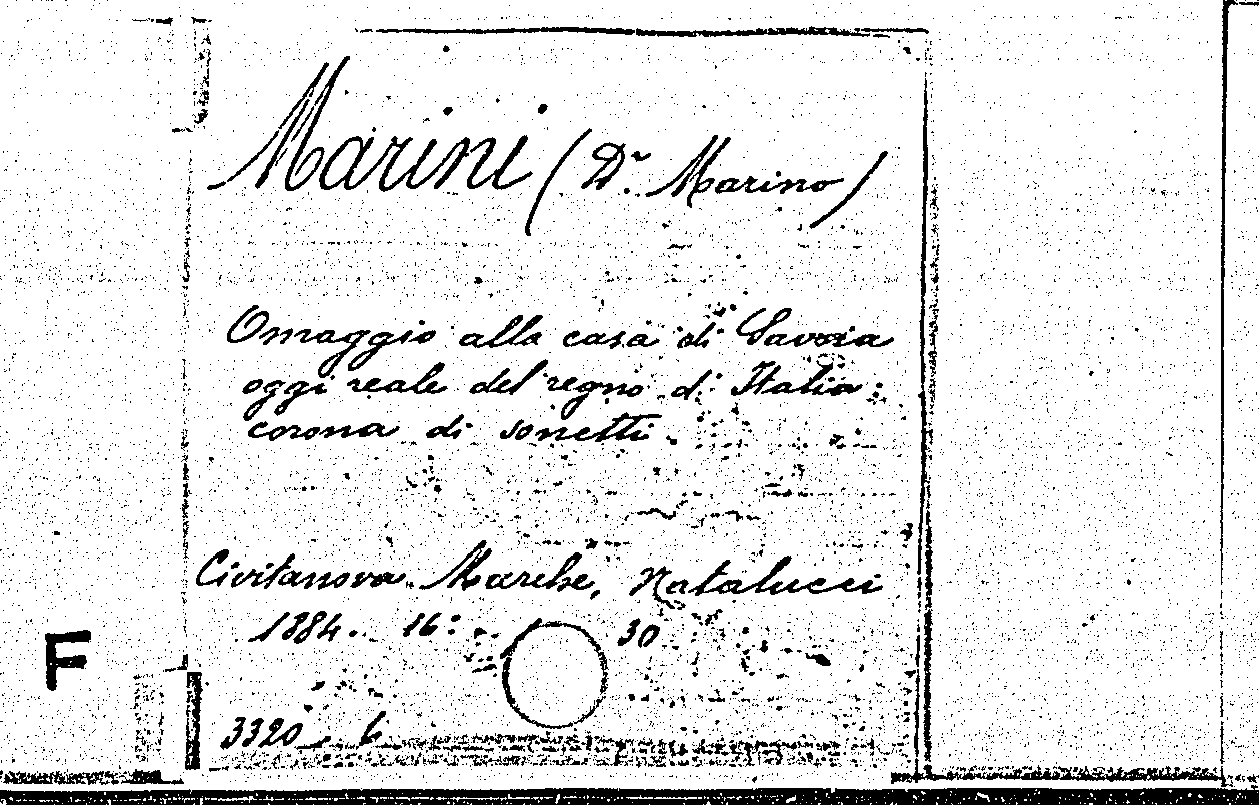 Marini (Dr. Marino)
Omaggio alla casa di Savoia
oggi reale del regno d'Italia:
corona di sonetti.
Civitanova Marche, Natalucci
1884. 16º 30
F
3320 b